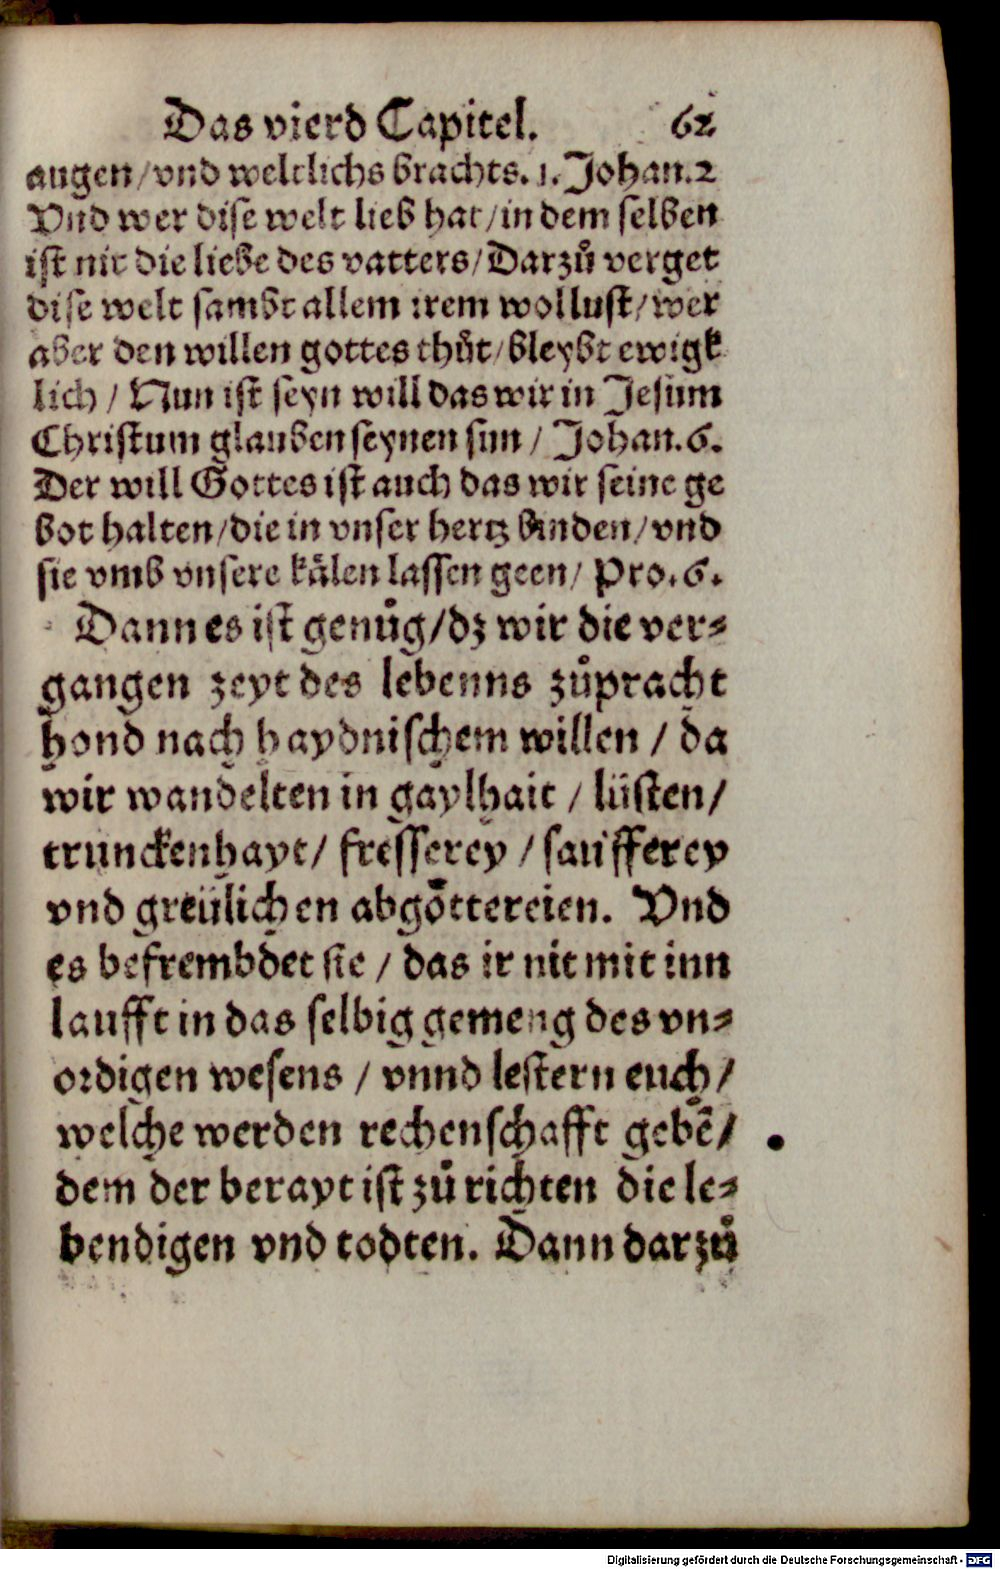 Das vierd Capitel. 62
augen/vnd weltlichs brachts. 1. Johan.2
Vnd wer dise welt lieb hat/in dem selben
ist nit die liebe des vatters/Darzů verget
dise welt sambt allem irem wollust/wer
aber den willen gottes thůt/bleybt ewigk
lich / Nun ist seyn will das wir in Jesum
Christum glauben seynen sun / Johan.6.
Der will Gottes ist auch das wir seine ge
bot halten/die in vnser hertz binden/vnd
sie vmb vnsere kälen lassen geen/ Pro.6.
Dann es ist genůg/dz wir die ver⸗
gangen zeyt des lebenns zůpracht
hond nach haydnischem willen / da
wir wandelten in gaylhait / lüsten/
trunckenhayt/ fresserey / saufferey
vnd greülichen abgöttereien. Vnd
es befrembdet sie / das ir nit mit inn
laufft in das selbig gemeng des vn⸗
ordigen wesens / vnnd lestern euch/
welche werden rechenschafft gebẽ/
dem der berayt ist zů richten die le⸗
bendigen vnd todten. Dann darzů
Digitalisierung gefördert durch die Deutsche Forschungsgemeinschaft - DFG